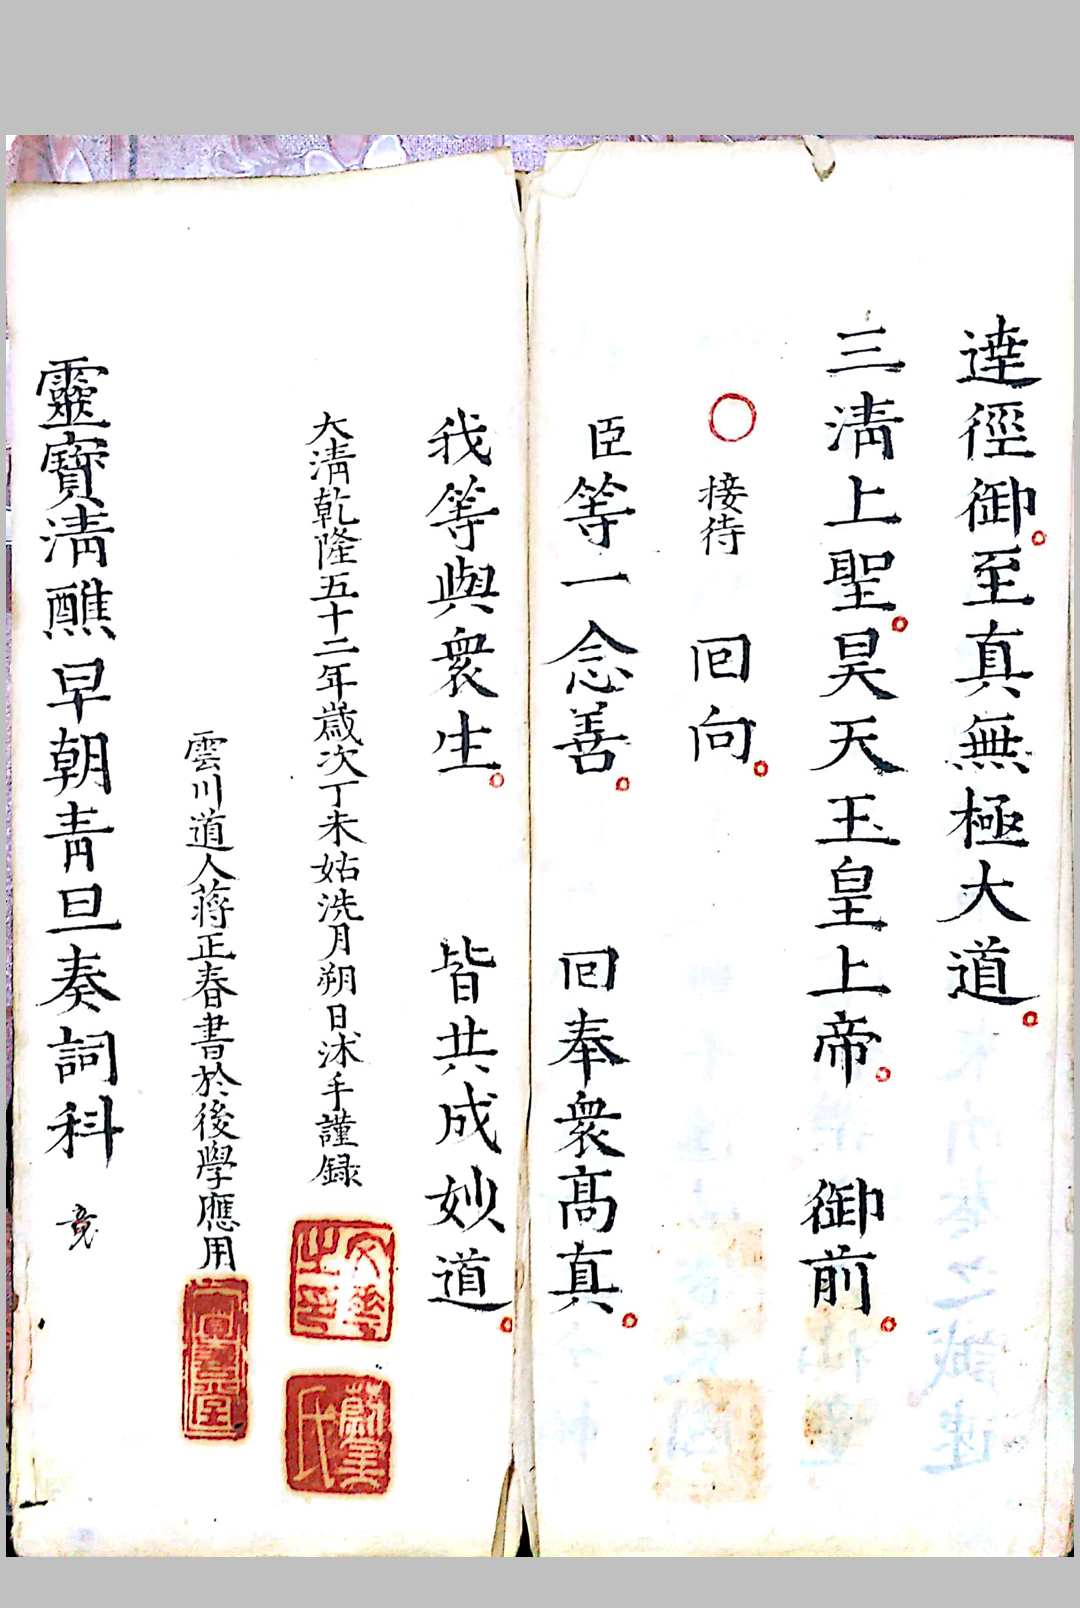 達徑御至真無極大道
三清上聖昊天玉皇上帝 御前
接待 囘向
臣等一念善 囘奉衆高真
我等與衆生 皆共成妙道
大清乾隆五十二年歲次丁未姑洗月朔日沐手謹録
雲川道人蒋正春書於後學應用
靈寶清醮早朝青旦奏詞科 竟